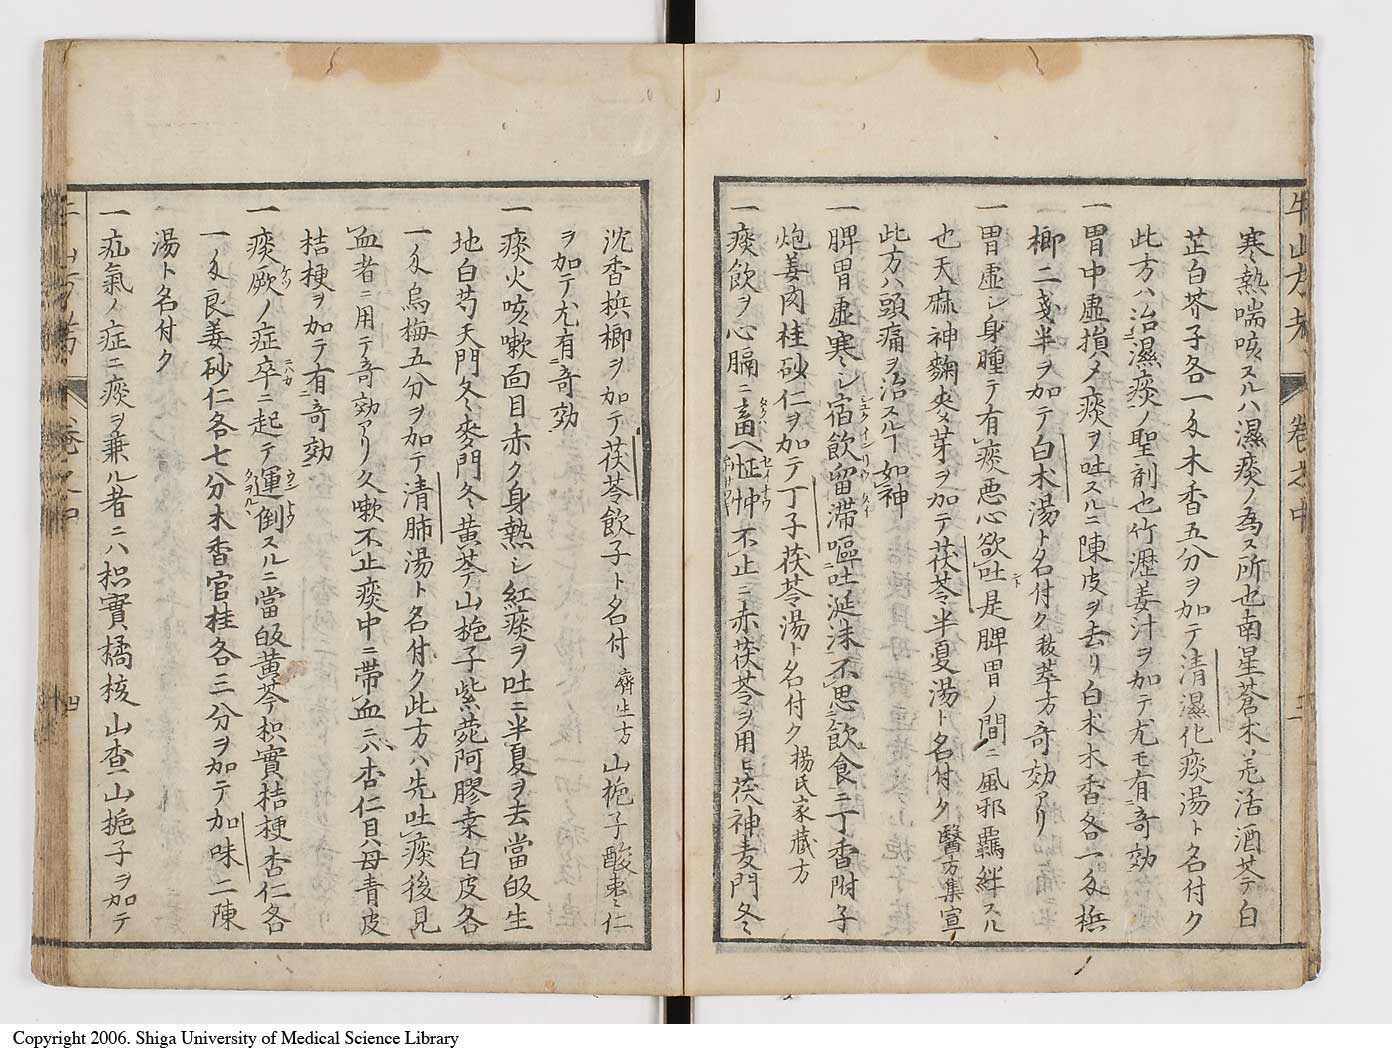 一寒熱喘咳スルハ濕痰ノ為ス所也南星蒼朮羌活酒芩白
芷白芥子各一匁木香五分ヲ加テ清濕化痰湯ト名付ク
此方ハ治濕痰ノ聖剤也竹瀝姜汁ヲ加テ尤モ有奇効
一胃中虚損メ痰ヲ吐スルニ陳皮ヲ去リ白朮木香各一匁梹
榔二戔半ヲ加テ白朮湯ト名付ク秘萃方奇効アリ
一胃虚シ身腫テ有痰悪心欲吐是脾胃ノ間ニ風邪羈絆スル
也天麻神麹炙芽ヲ加テ茯苓半夏湯ト名付ク醫方集宣
此方ハ頭痛ヲ治スルヿ如神
一脾胃虚寒シ宿飲留滞嘔吐涎沫不思飲食ニ丁香附子
炮姜肉桂砂仁ヲ加テ丁子茯苓湯ト名付ク楊氏家蔵方
一痰飲ヲ心膈ニ畜ヘ怔忡不止ニ赤茯苓ヲ用ヒ茯神麦門冬
沈香梹榔ヲ加テ茯苓飲子ト名付 齊生方 山梔子酸棗仁
ヲ加テ尤有奇効
一痰火咳嗽面目赤ク身熱シ紅痰ヲ吐ニ半夏ヲ去當皈生
地白芍天門冬麥門冬黄芩山梔子紫菀阿膠桒白皮各
一匁烏梅五分ヲ加テ清肺湯ト名付ク此方ハ先吐痰後見
血者ニ用テ奇効アリ久嗽不止痰中ニ帯血ニハ杏仁貝母青皮
桔梗ヲ加テ有奇効
一痰厥ノ症卒ニ起テ運倒スルニ當皈黄芩枳實桔梗杏仁各
一匁良姜砂仁各七分木香官桂各三分ヲ加テ加味二陳
湯ト名付ク
一疝氣ノ症ニ痰ヲ兼ル者ニハ枳實橘核山査山梔子ヲ加テ
牛山方考
卷之中
三
四
Copyright 2006. Shiga University of Medical Science Library